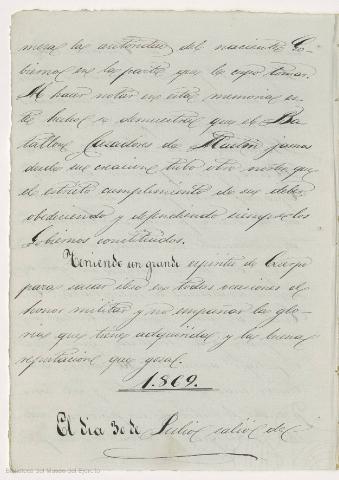 mera las autoridades del naciente Go-
bierno en la parte que le cupo tomar.
Al hacer notar en esta memoria es-
te hecho se demuestra que el Ba-
tallon Cazadores de Merida jamas
desde su creacion tubo otro norte que
el estricto cumplimiento de sus deber
obedeciendo y defendiendo siempre los
Gobiernos constituidos.
Teniendo un grande espiritu de Cuerpo
para sacar ileso en todas ocasiones el
honor militar y no empañar las glo-
rias que tiene adquiridas y la buena
reputacion que goza.
1.869.
El dia 30 de Julio salió de
Biblioteca del Museo del Ejército